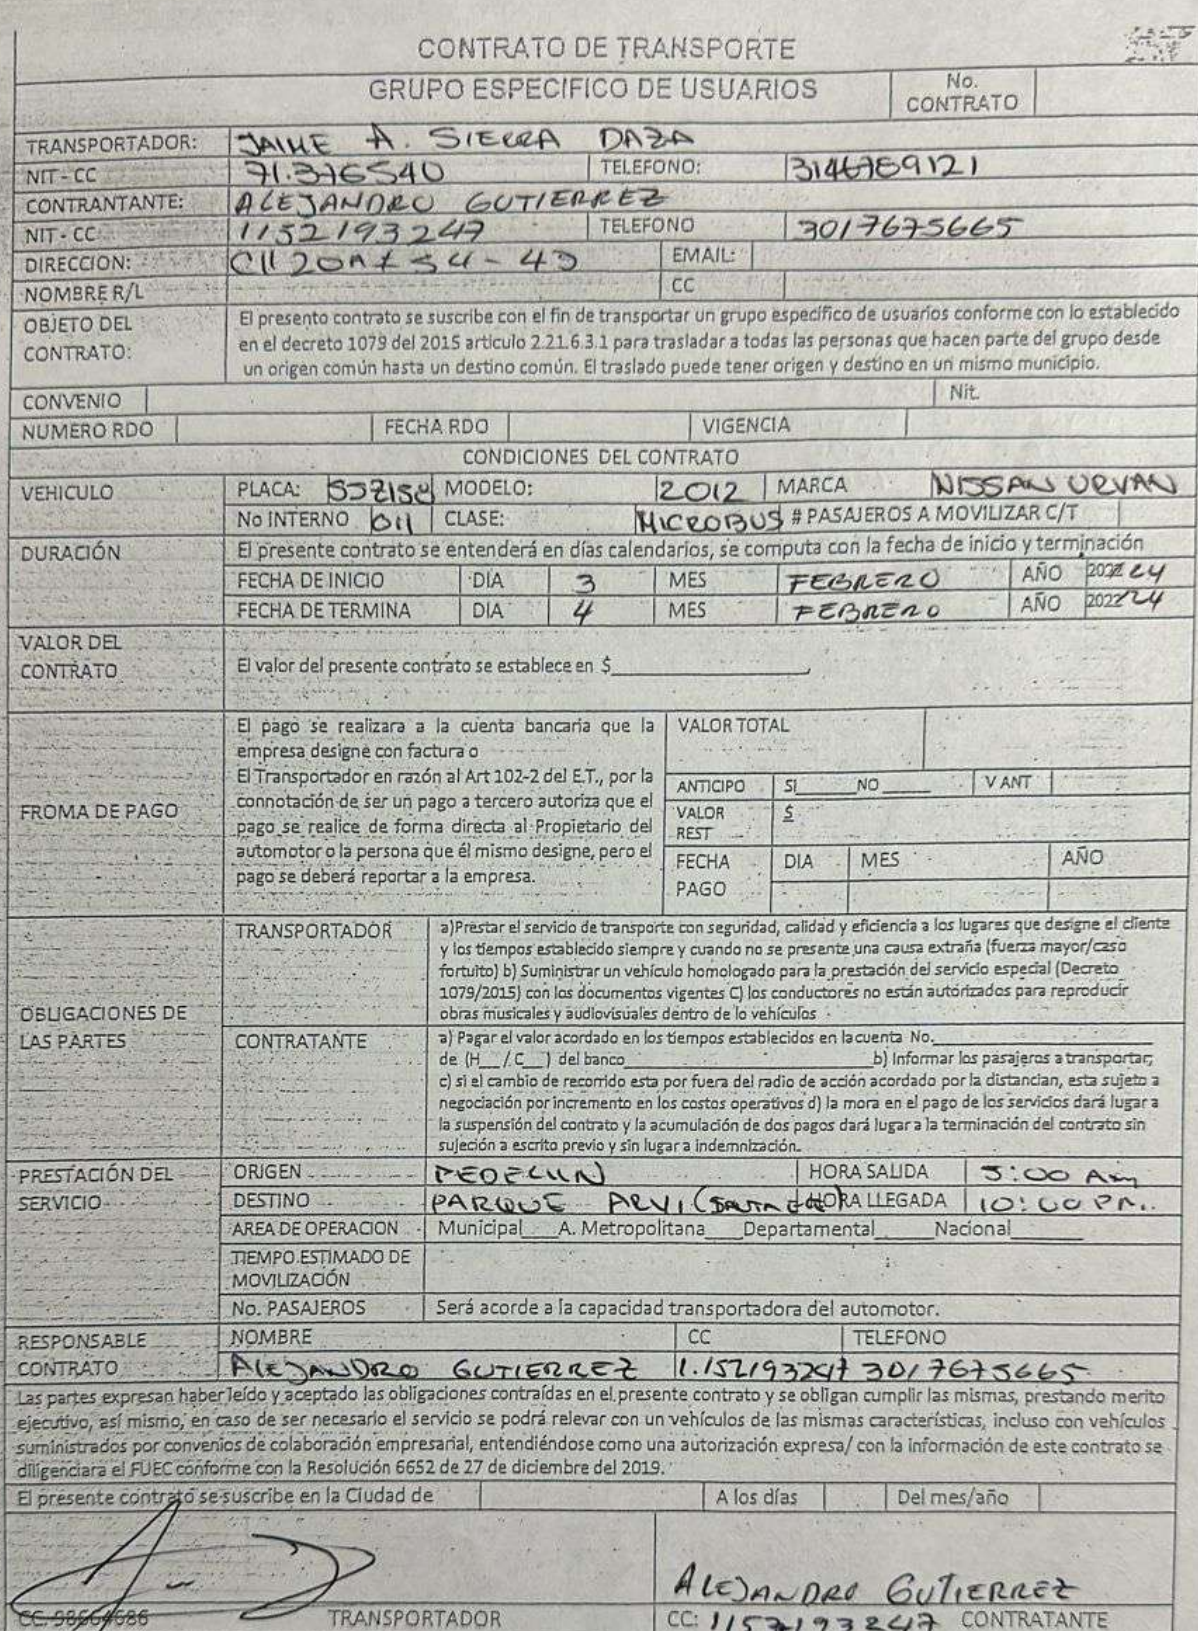 CONTRATO DE TRANSPORTE
GRUPO ESPECIFICO DE USUARIOS No. CONTRATO
TRANSPORTADOR: JAIME A. SIERRA DAZA
NIT - CC 71.376540 TELEFONO: 3146789121
CONTRANTANTE: ALEJANDRO GUTIERREZ
NIT - CC 1152193247 TELEFONO 3017675665
DIRECCION: EMAIL:
NOMBRE R/L CC
OBJETO DEL CONTRATO: El presento contrato se suscribe con el fin de transportar un grupo específico de usuarios conforme con lo establecido
en el decreto 1079 del 2015 articulo 2.21.6.3.1 para trasladar a todas las personas que hacen parte del grupo desde
un origen común hasta un destino común. El traslado puede tener origen y destino en un mismo municipio.
CONVENIO Nit.
NUMERO RDO FECHA RDO VIGENCIA
CONDICIONES DEL CONTRATO
VEHICULO PLACA: MODELO: 2012 MARCA NISSAN URVAN
No INTERNO 011 CLASE: MICROBUS # PASAJEROS A MOVILIZAR C/T
DURACIÓN El presente contrato se entenderá en días calendarios, se computa con la fecha de inicio y terminación
FECHA DE INICIO DIA 3 MES FEBRERO AÑO 24
FECHA DE TERMINA DIA 4 MES FEBRERO AÑO 2022 24
VALOR DEL CONTRATO El valor del presente contrato se establece en $
FROMA DE PAGO El pago se realizara a la cuenta bancaria que la
empresa designe con factura o
El Transportador en razón al Art 102-2 del E.T., por la
connotación de ser un pago a tercero autoriza que el
pago se realice de forma directa al Propietario del
automotor o la persona que él mismo designe, pero el
pago se deberá reportar a la empresa.
VALOR TOTAL
ANTICIPO SI____ NO____ V ANT
VALOR REST $
FECHA PAGO DIA MES AÑO
OBLIGACIONES DE LAS PARTES
TRANSPORTADOR a)Prestar el servicio de transporte con seguridad, calidad y eficiencia a los lugares que designe el cliente
y los tiempos establecido siempre y cuando no se presente una causa extraña (fuerza mayor/caso
fortuito) b) Suministrar un vehículo homologado para la prestación del servicio especial (Decreto
1079/2015) con los documentos vigentes C) los conductores no están autorizados para reproducir
obras musicales y audiovisuales dentro de lo vehículos
CONTRATANTE a) Pagar el valor acordado en los tiempos establecidos en lacuenta No.
de (H__/C__) del banco____ b) Informar los pasajeros a transportar;
c) si el cambio de recorrido esta por fuera del radio de acción acordado por la distancian, esta sujeto a
negociación por incremento en los costos operativos d) la mora en el pago de los servicios dará lugar a
la suspensión del contrato y la acumulación de dos pagos dará lugar a la terminación del contrato sin
sujeción a escrito previo y sin lugar a indemnización.
PRESTACIÓN DEL SERVICIO ORIGEN HORA SALIDA 5:00 Am
DESTINO PARQUE ARVI HORA LLEGADA 10:00 PM.
AREA DE OPERACION Municipal___A. Metropolitana___Departamental____Nacional____
TIEMPO ESTIMADO DE MOVILIZACIÓN
No. PASAJEROS Será acorde a la capacidad transportadora del automotor.
RESPONSABLE CONTRATO NOMBRE CC TELEFONO
ALEJANDRO GUTIERREZ 1.152193247 3017675665
Las partes expresan haber leído y aceptado las obligaciones contraídas en el presente contrato y se obligan cumplir las mismas, prestando merito
ejecutivo, así mismo, en caso de ser necesario el servicio se podrá relevar con un vehículos de las mismas características, incluso con vehículos
suministrados por convenios de colaboración empresarial, entendiéndose como una autorización expresa/ con la información de este contrato se
diligenciara el FUEC conforme con la Resolución 6652 de 27 de diciembre del 2019.
El presente contrato se suscribe en la Ciudad de A los días Del mes/año
ALEJANDRO GUTIERREZ
CC: 98664686 TRANSPORTADOR CC: 1152193247 CONTRATANTE